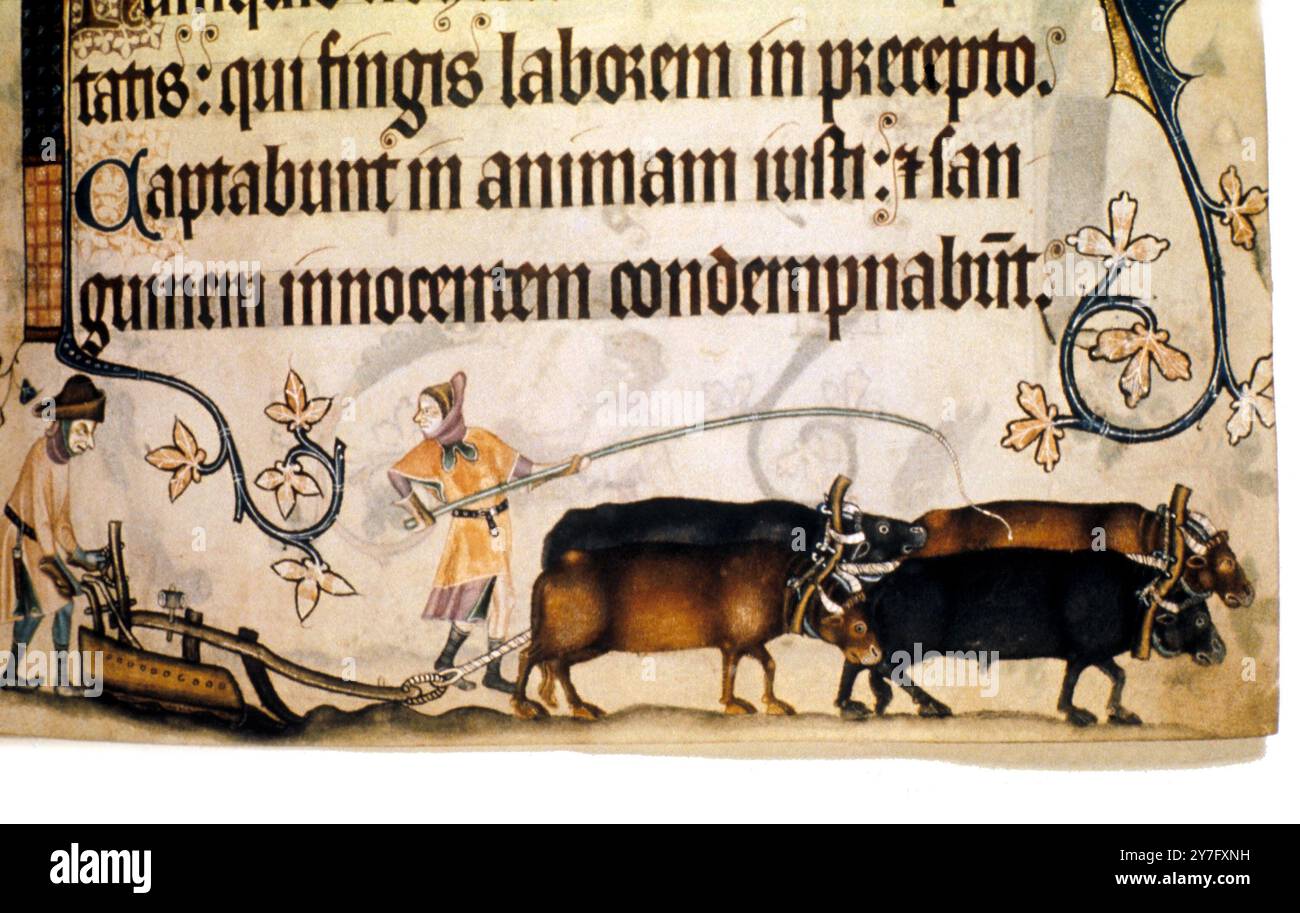 tatis: qui fingis laborem in precepto.
Captabunt in animam iusti: ⁊ san
guinem innocentem condempnabūt.
alamy
alamy
Image ID: 2Y7FXNH
www.alamy.com